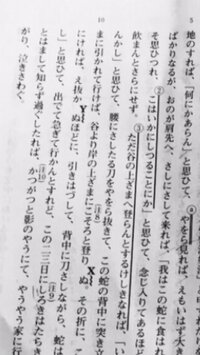 5
10
地のすれば、「何にかあらん」と思ひて、④やをら見れば、えもいはず大
ばかりなるが、おのが肩先へ、さしにさして来れば、「我はこの蛇に食は
そ思ひつれ、②こはいかにしつることにか」と思ひて、念じ入りてあるほど
飲まんとさらにせず。③ただ谷の上ざまへ登らんとするけしきなれば、「い
んかし」と思ひて、腰にさしたる刀をやをら抜きて、この蛇の背中に突き
まに引かれて行けば、谷より岸の上ざまにこそろと登りXぬ。その折に、
にければ、え抜かYぬほどに、引きはづして、背中に刀さしながら、蛇は
し」と思ひて、出でて急ぎて行かんとすれど、この二三日
とはまして知らず過ぐしたれば、かつがつと影のやうにて、やうやう家に行
がり、泣きさわぐ